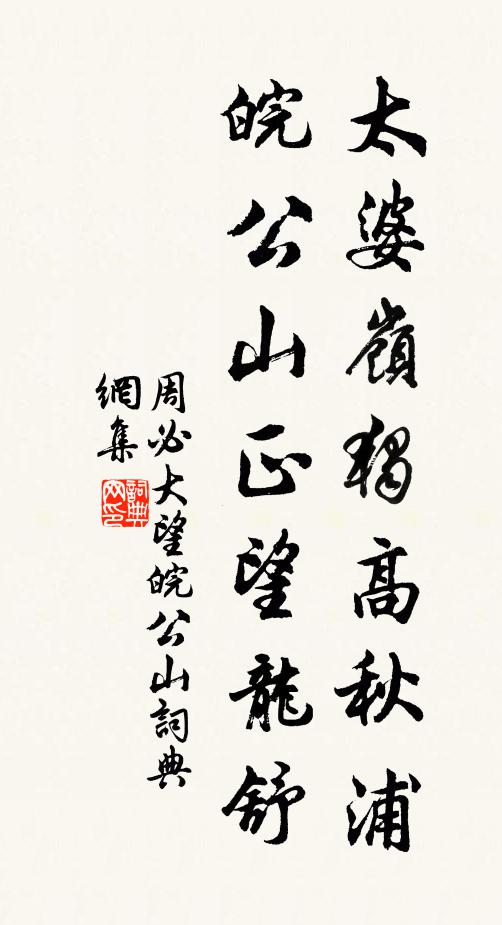 太婆嶺獨高秋浦
皖公山正望龍舒
周必大望皖公山詞典
網集
詞典
网印